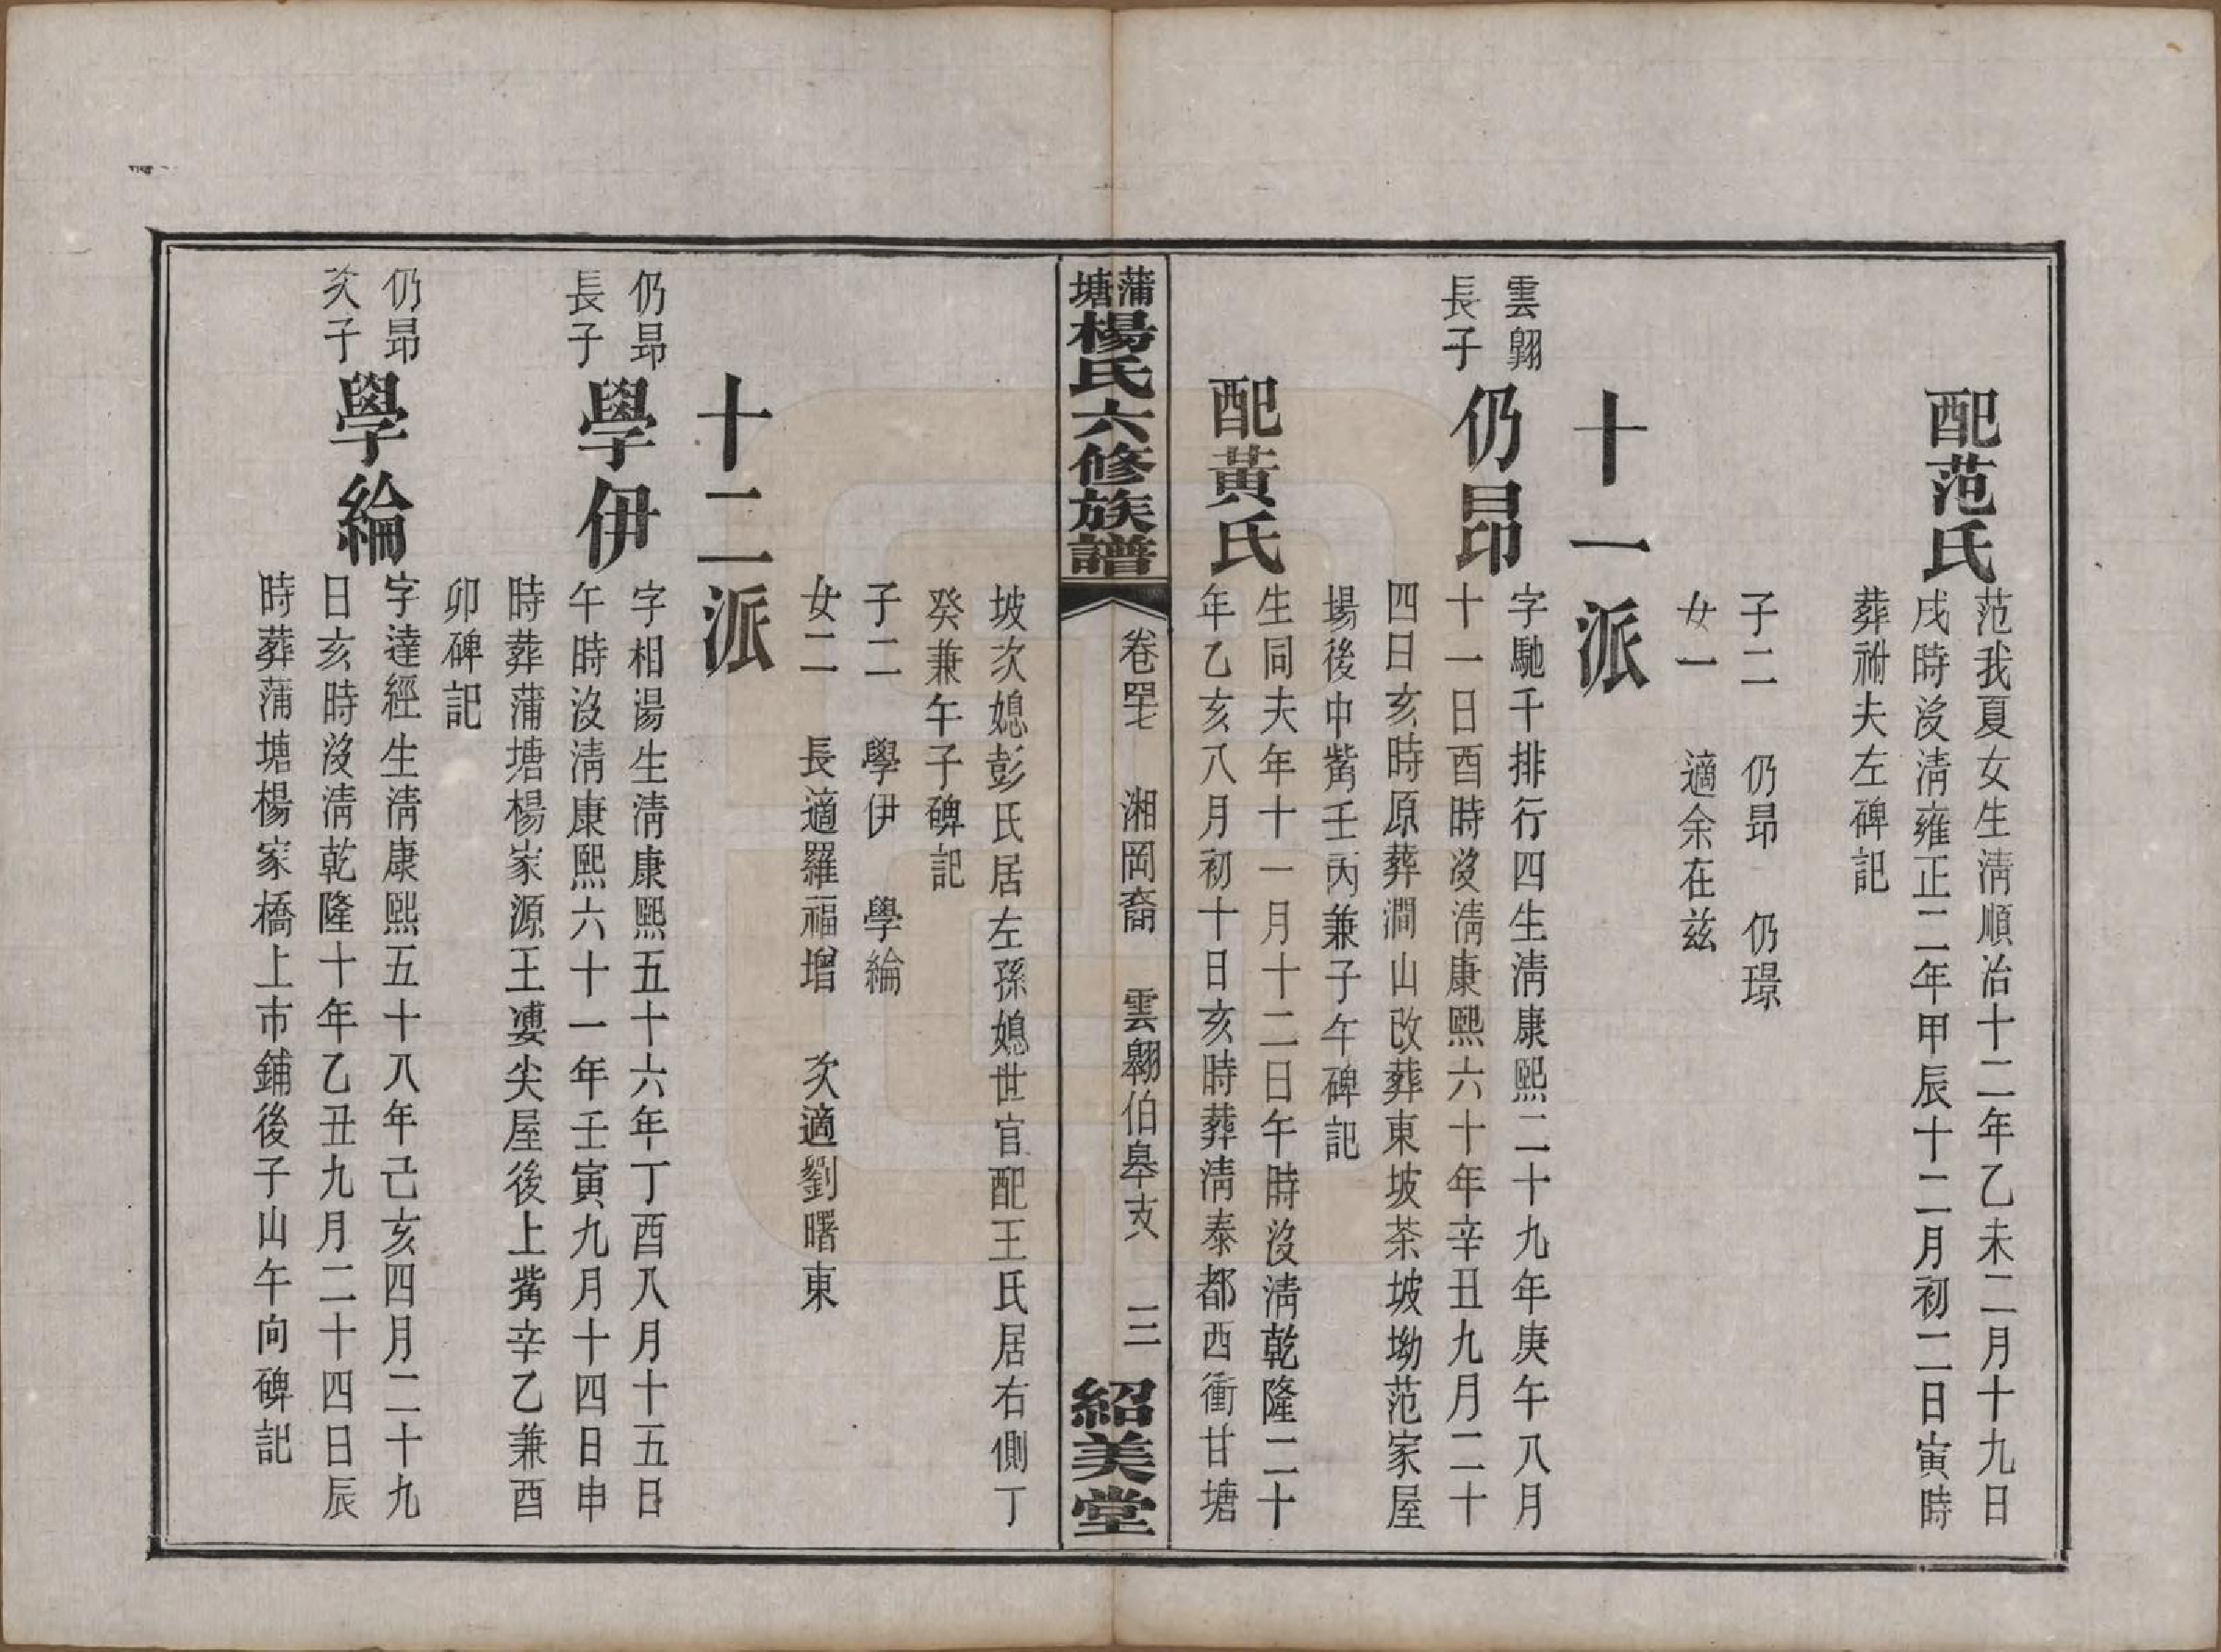 配范氏
范我夏女生淸順治十二年乙未二月十九日
戌時沒淸雍正二年甲辰十二月初二日寅時
葬祔夫左碑記
子二　仍昂　仍璟
女一　適余在茲
十一派
雲翺
長子
仍昂
字馳千排行四生淸康熙二十九年庚午八月
十一日酉時沒淸康熙六十年辛丑九月二十
四日亥時原葬澗山改葬東坡茶坡坳范家屋
場後中嘴壬丙兼子午碑記
配黃氏
生同夫年十一月十二日午時沒淸乾隆二十
年乙亥八月初十日亥時葬淸泰都西衝甘塘
蒲塘楊氏六修族譜
卷四七　湘岡裔　雲翺伯皋支　三
紹美堂
坡次媳彭氏居左孫媳世官配王氏居右側丁
癸兼午子碑記
子二　學伊　學綸
女二　長適羅福增　次適劉曙東
十二派
仍昂
長子
學伊
字相湯生淸康熙五十六年丁酉八月十五日
午時沒淸康熙六十一年壬寅九月十四日申
時葬蒲塘楊家源王婆尖屋後上嘴辛乙兼酉
卯碑記
仍昂
次子
學綸
字達經生淸康熙五十八年己亥四月二十九
日亥時沒淸乾隆十年乙丑九月二十四日辰
時葬蒲塘楊家橋上市鋪後子山午向碑記